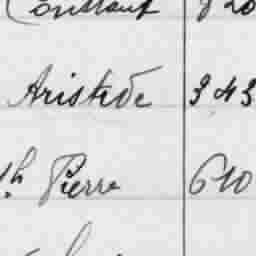 Constant 820
Aristide 343
h Pierre 610